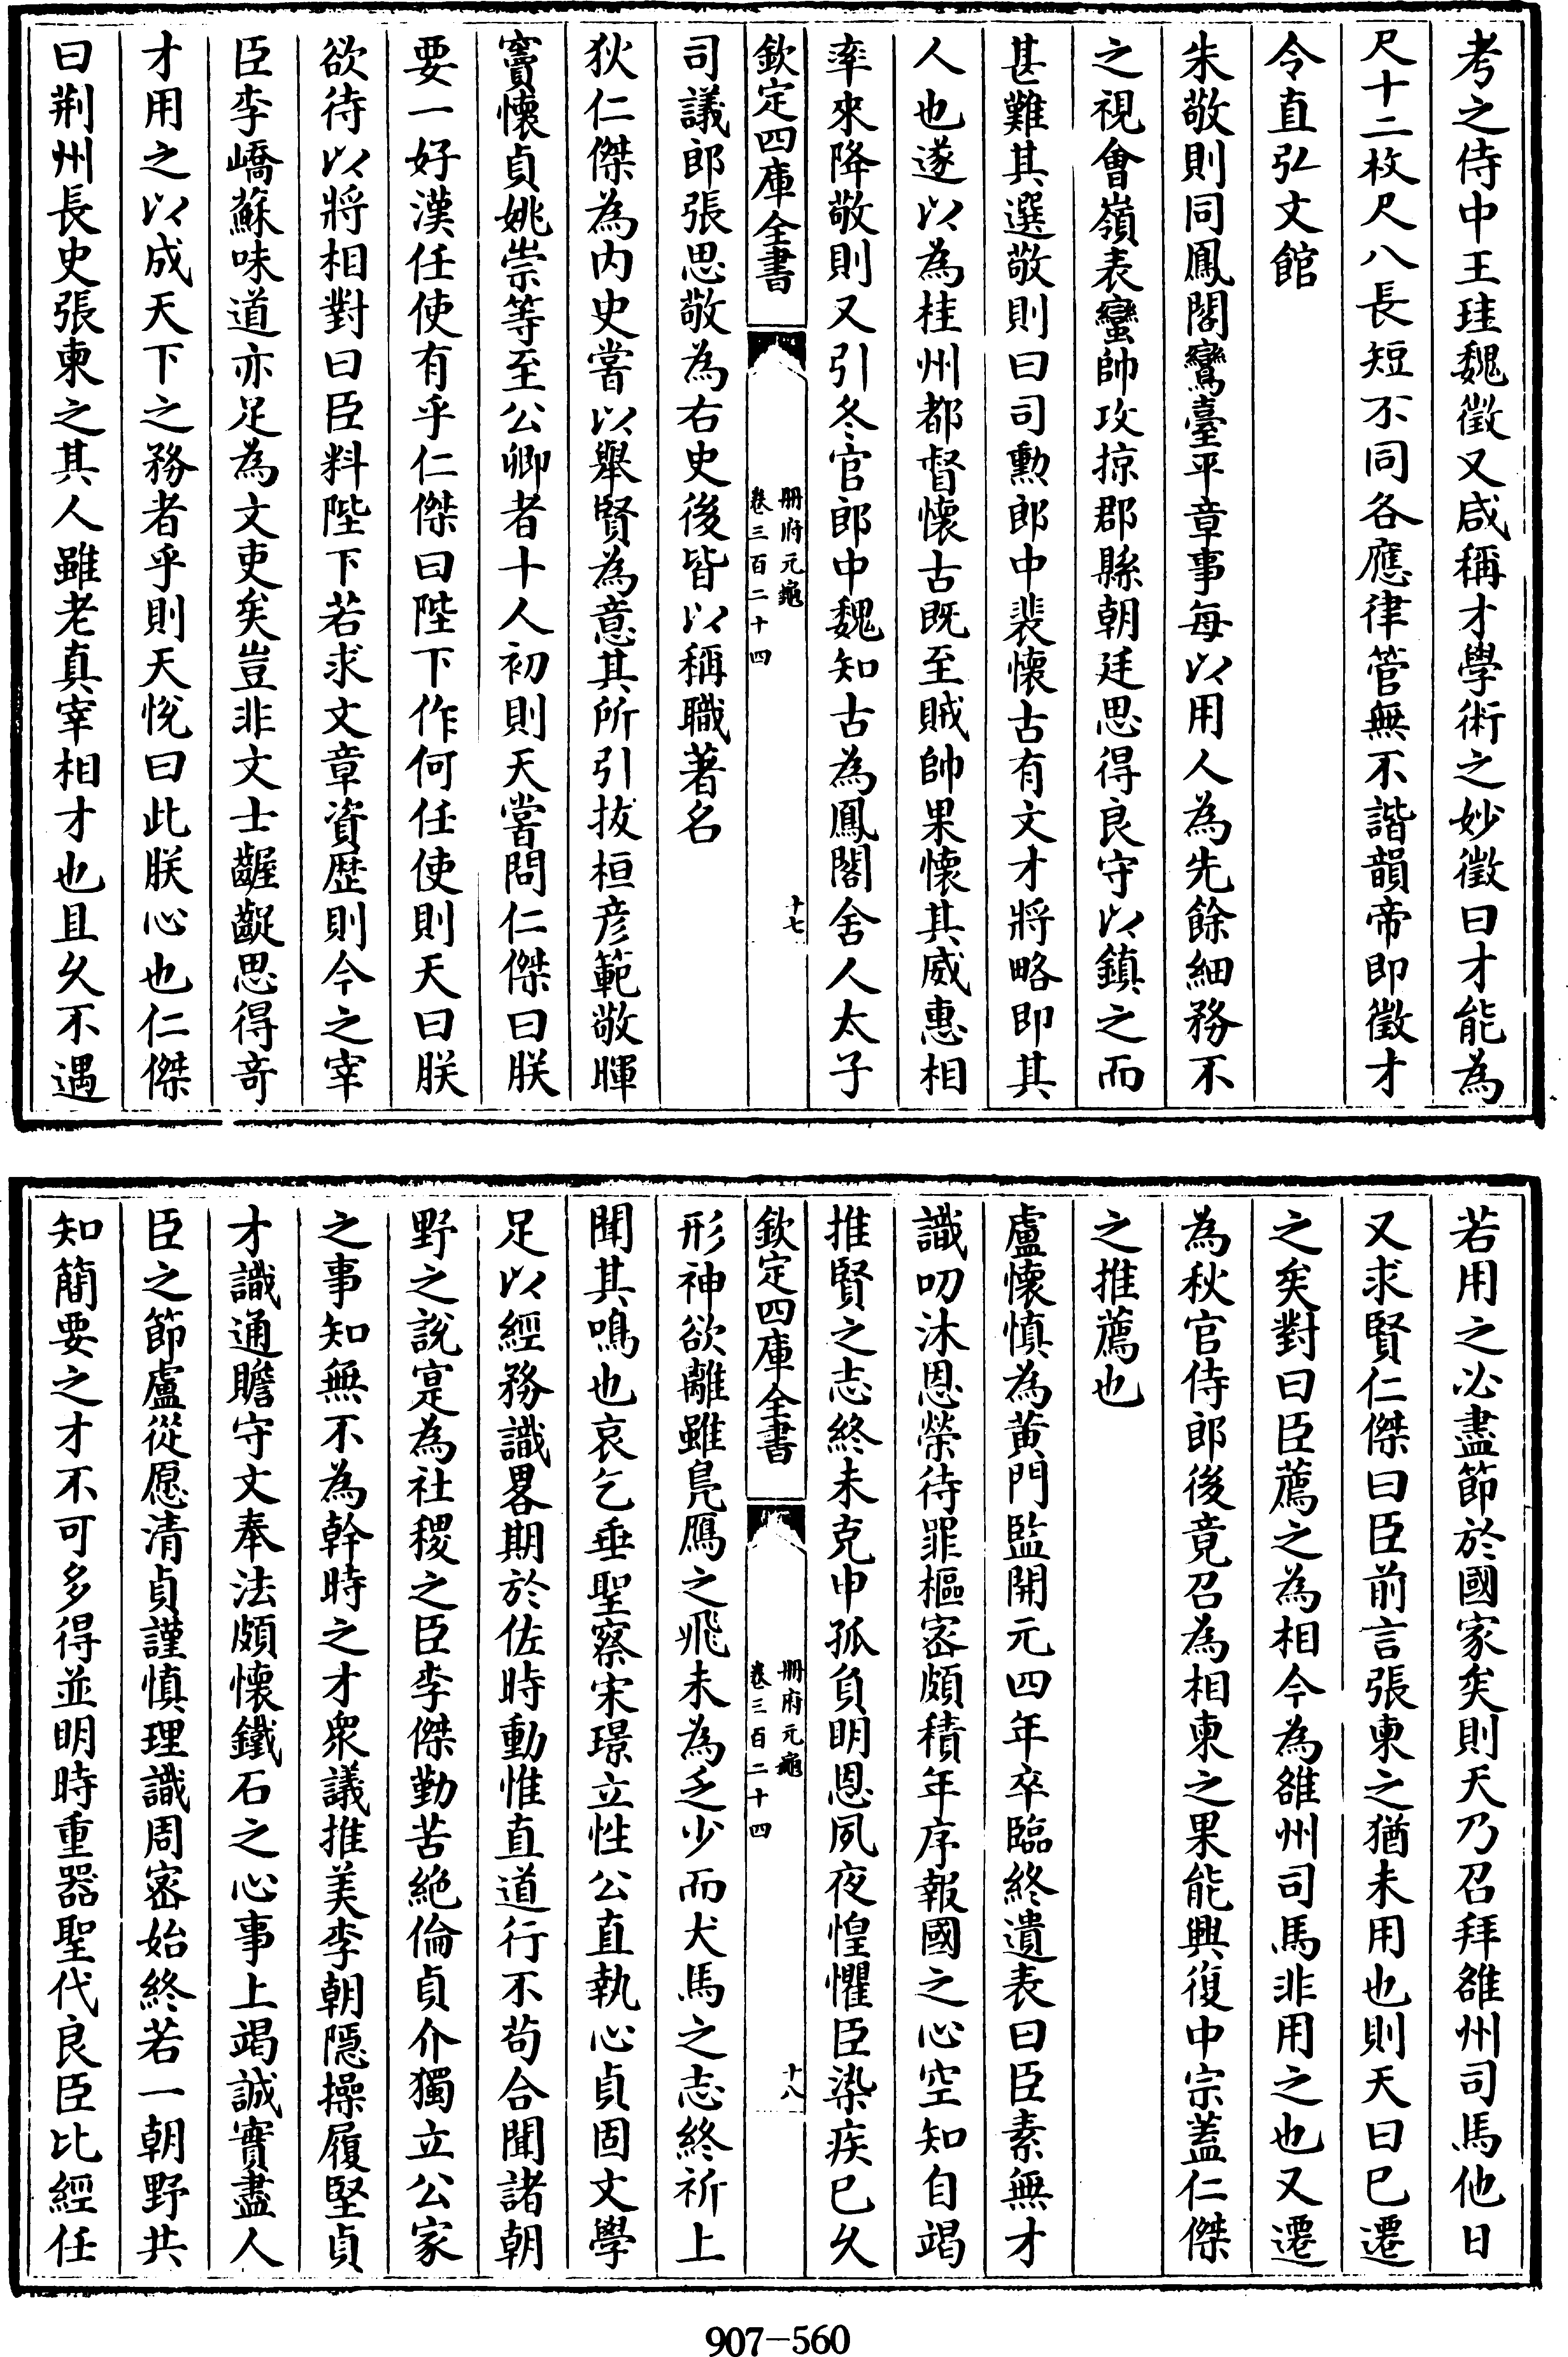 考之侍中王珪魏徵又咸稱才學術之妙徵曰才能為
尺十二枚尺八長短不同各應律管無不諧韻帝即徵才
令直弘文館
朱敬則同鳳閣鸞臺平章事每以用人為先餘細務不
之視會嶺表蠻帥攻掠郡縣朝廷思得良守以鎮之而
甚難其選敬則曰司勳郎中裴懷古有文才將略即其
人也遂以為桂州都督懷古既至賊帥果懷其威惠相
率來降敬則又引冬官郎中魏知古為鳳閣舍人太子
欽定四庫全書
冊府元龜
卷三百二十四
十七
司議郎張思敬為右史後皆以稱職著名
狄仁傑為內史嘗以舉賢為意其所引拔桓彦範敬暉
竇懷貞姚崇等至公卿者十人初則天嘗問仁傑曰朕
要一好漢任使有乎仁傑曰陛下作何任使則天曰朕
欲待以將相對曰臣料陛下若求文章資歷則今之宰
臣李嶠蘇味道亦足為文吏矣豈非文士齷齪思得奇
才用之以成天下之務者乎則天悅曰此朕心也仁傑
曰荆州長史張柬之其人雖老真宰相才也且久不遇
若用之必盡節於國家矣則天乃召拜雒州司馬他日
又求賢仁傑曰臣前言張柬之猶未用也則天曰已遷
之矣對曰臣薦之為相今為雒州司馬非用之也又遷
為秋官侍郎後竟召為相柬之果能興復中宗蓋仁傑
之推薦也
盧懷慎為黃門監開元四年卒臨終遺表曰臣素無才
識叨沐恩榮待罪樞密頗積年序報國之心空知自竭
推賢之志終未克申孤負明恩夙夜惶懼臣染疾已久
欽定四庫全書
冊府元龜
卷三百二十四
十八
形神欲離雖鳧鴈之飛未為乏少而犬馬之志終祈上
聞其鳴也哀乞垂聖察宋璟立性公直執心貞固文學
足以經務識畧期於佐時動惟直道行不茍合聞諸朝
野之說寔為社稷之臣李傑勤苦絶倫貞介獨立公家
之事知無不為幹時之才衆議推美李朝隱操履堅貞
才識通贍守文奉法頗懷鐵石之心事上竭誠實盡人
臣之節盧從愿清貞謹慎理識周密始終若一朝野共
知簡要之才不可多得並明時重器聖代良臣比經任
907-560